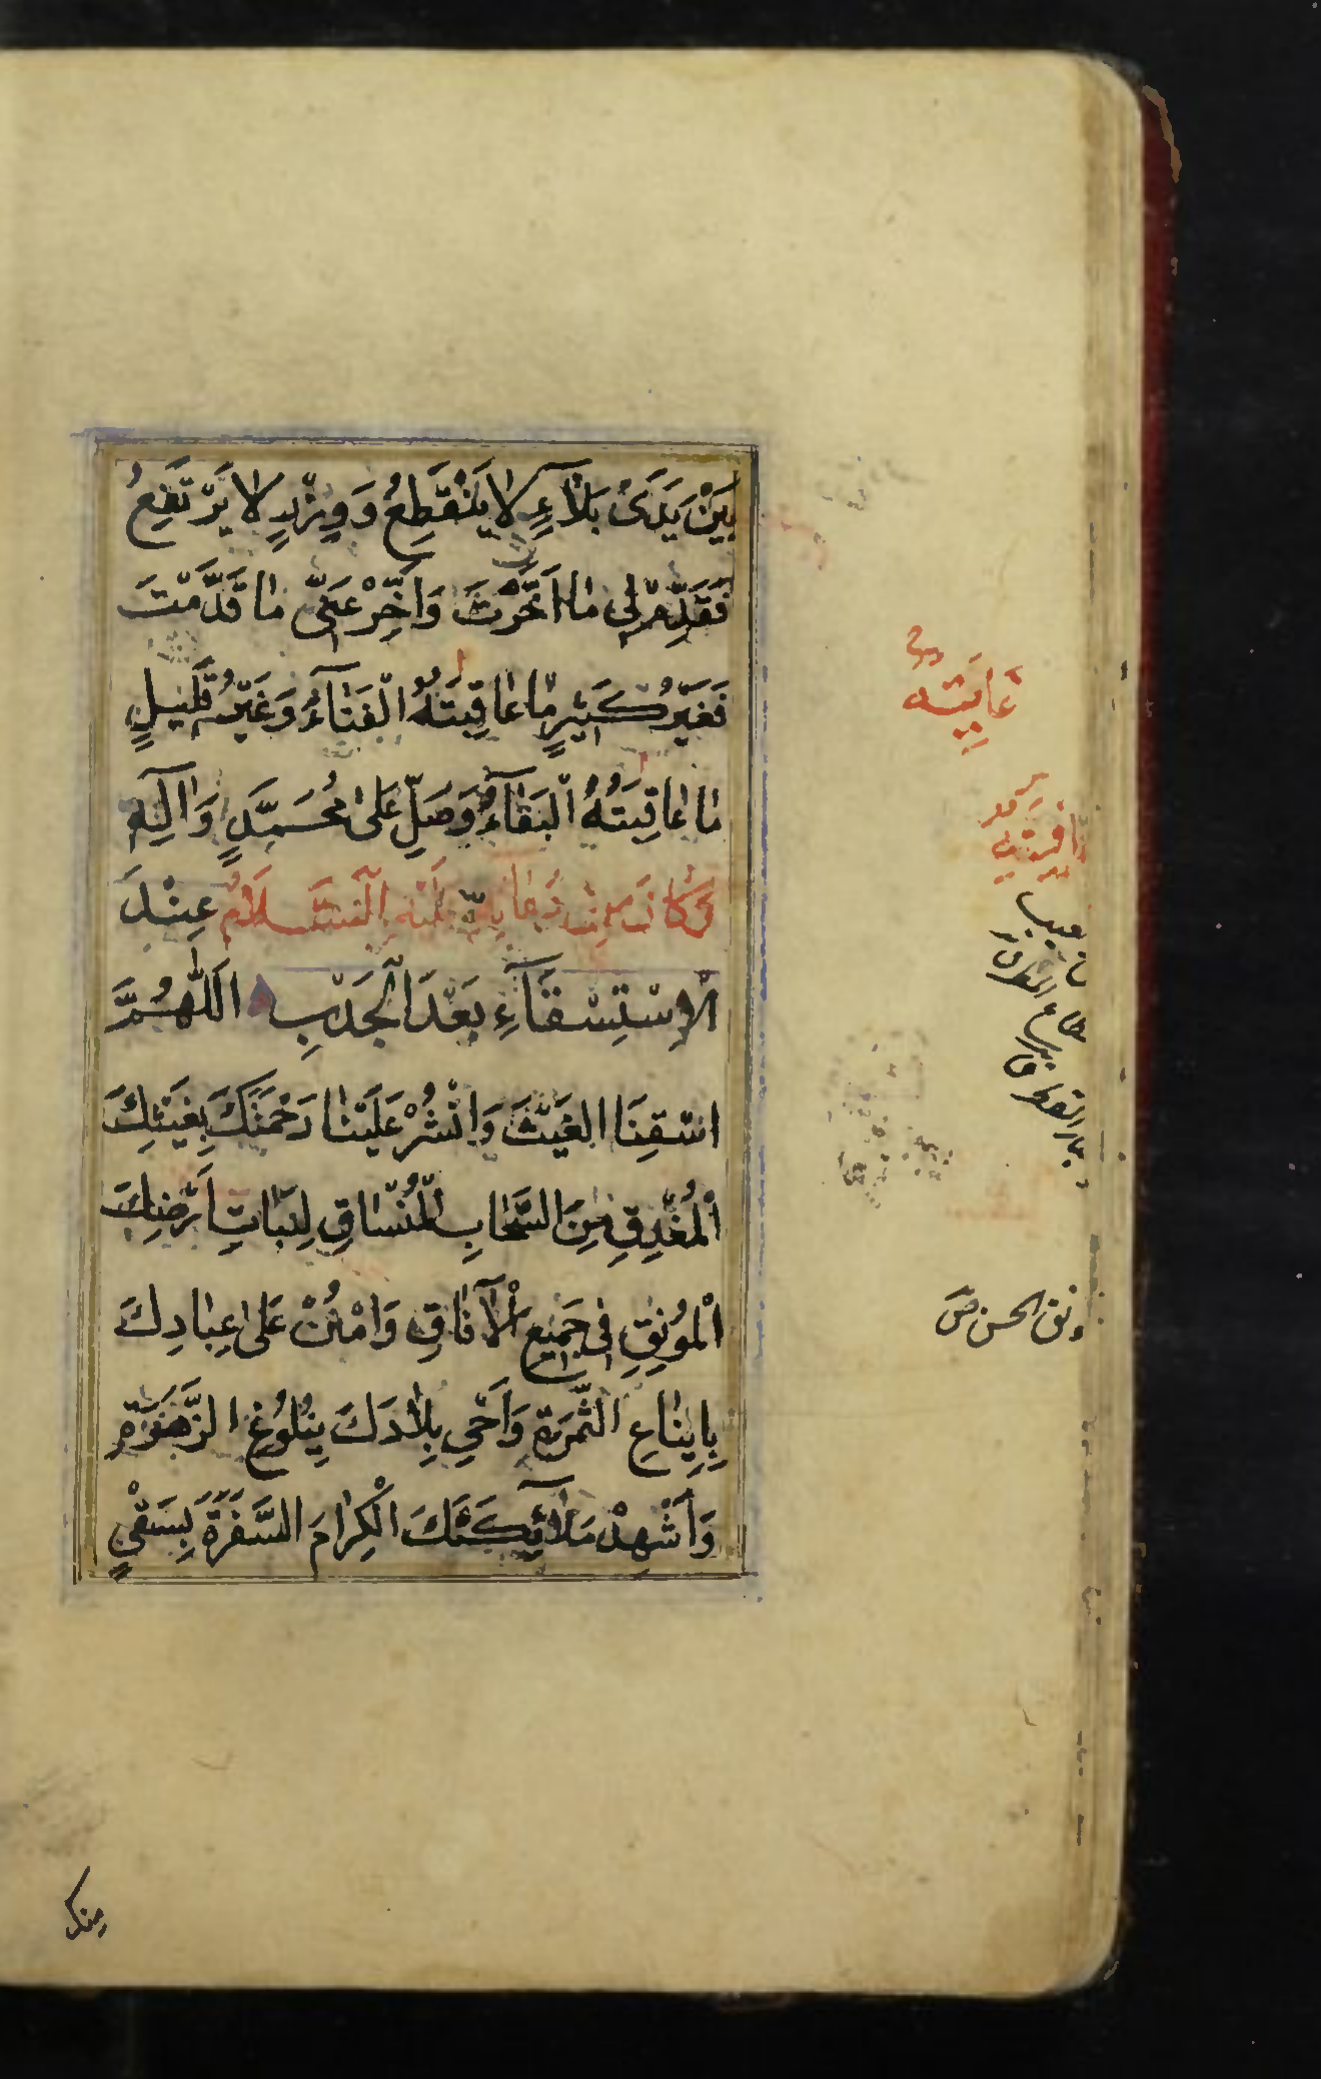 بَيْنَ يَدَىْ بَلَآءٍ لَا يَنْقَطِعُ وَوِزْرٍ لَا يَرْتَفِعُ
فَقَدِّمْ لِي مَا اَخَّرْتَ وَاَخِّرْ عَنِّي مَا قَدَّمْتَ
فَغَيْرُ كَثِيرٍ مَا عَاقِبَتُهُ الْفَنَآءُ وَغَيْرُ قَلِيلٍ
مَا عَاقِبَتُهُ الْبَقَآءُ وَصَلِّ عَلَى مُحَمَّدٍ وَآلِهِ
وَكَانَ مِنْ دُعَائِهِ عَلَيْهِ السَّلَامُ عِنْدَ
الْاِسْتِسْقَآءِ بَعْدَ الْجَدْبِ اَللّٰهُمَّ
اسْقِنَا الْغَيْثَ وَانْشُرْ عَلَيْنَا رَحْمَتَكَ بِغَيْثِكَ
الْمُغْدِقِ مِنَ السَّحَابِ الْمُنْسَاقِ لِنَبَاتِ اَرْضِكَ
الْمُونِقِ فِي جَمِيعِ الْآفَاقِ وَامْنُنْ عَلَى عِبَادِكَ
بِاِينَاعِ الثَّمَرَةِ وَاَحْيِ بِلَادَكَ بِبُلُوغِ الزَّهَرَةِ
وَاَشْهِدْ مَلَآئِكَتَكَ الْكِرَامَ السَّفَرَةَ بِسَقْيٍ
عَاقِبَتُهُ
منك